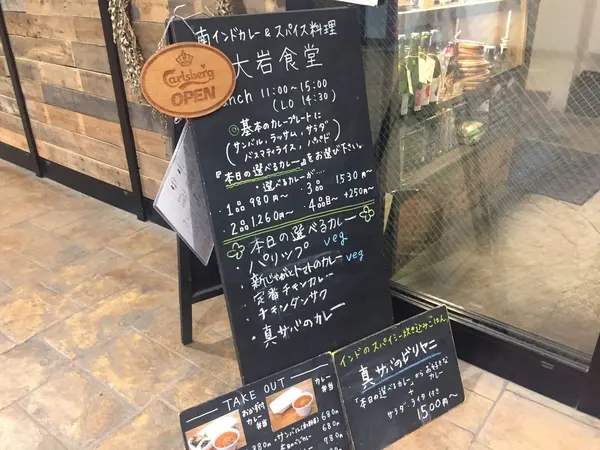 南インドカレー&スパイス料理
大岩食堂
Carlsberg
OPEN
Lunch 11:00～15:00
(LO 14:30)
◎基本のカレープレートに
(サンバル,ラッサム,サラダ
バスマティライス,パパド)
『本日の選べるカレー』をお選び下さい。
・選べるカレーが…
・1品 980円～
3品 1530円～
・2品 1,260円～
4品目～ +250円～
本日の選べるカレー
・パリップ veg
・新じゃがとトマトのカレー veg
・定番チキンカレー
・チキンダンサク
・真サバのカレー
インドのスパイシー炊き込みごはん
真サバのビリヤニ
「本日の選べるカレー」からお好きな
カレー
+
サラダ・ライタ付き
1500円～
TAKE OUT
カレー
弁当
おかず付
カレー
弁当
880円
680円
680円
780円